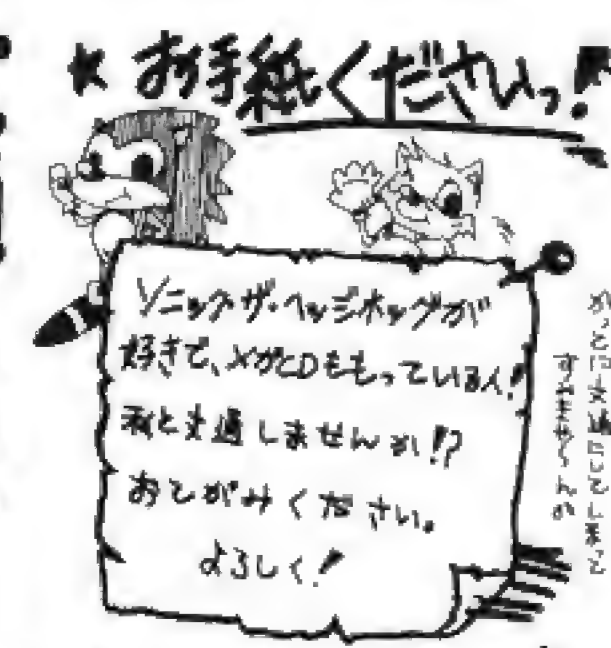 お手紙くださいっ!
ソニックザ・ヘッジホッグが
好きで、メガCDももっている人!
私と文通しませんか!?
おてがみください。
よろしく!
かってに文通にしてしまって
すみませ〜んが